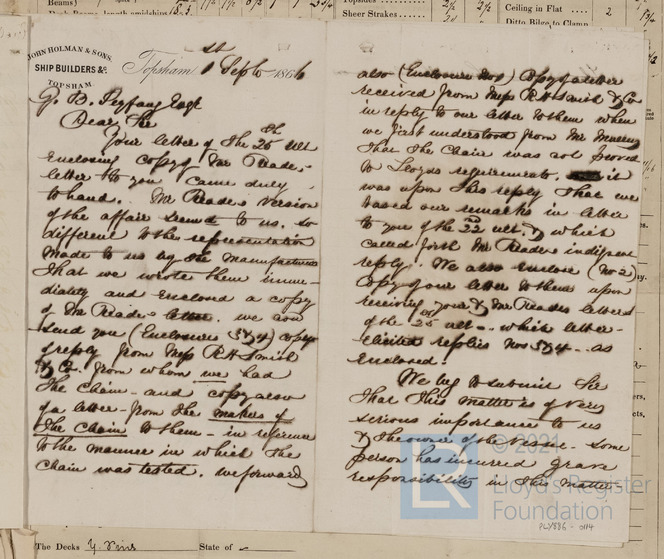 JOHN HOLMAN & SONS,
SHIP BUILDERS &c.
TOPSHAM.
Topsham 1st Septr 1866
G. B. Esqr
Dear Sir
Your letter of the 25th ult
enclosing copy of Mr Reade's
letter to you came duly
to hand. Mr Reade's version
of the affair seemed to us so
different to the representation
made to us by the manufacturers
that we wrote them imme-
diately and enclosed a copy
of Mr Reade's letter. we now
send you (Enclosures 3 & 4) copy
of reply from Messs R H Smith
& Co. from whom we had
the Chain - and copy also
of a letter - from the makers of
the Chain to them - in reference
to the manner in which the
Chain was tested. we forward
also (Enclosure No 1) Copy of a letter
received from Messs R H Smith & Co
in reply to our letter to them when
we first understood from Mr Murray
that the Chain was not proved
to Lloyds requirements. it
was upon this reply that we
based our remarks in letter
to you of the 22 ult. & which
called forth Mr Reade's indignant
reply. We also enclose (No 2)
Copy of our letter to them upon
receiving yours & Mr Reades letters
of the 25 ult - which letter -
elicited replies Nos 3 & 4 - as
enclosed.
We beg to submit Sir
that this matter is of very
serious importance to us
& the owner of the Vessel - Some
person has incurred grave
responsibility in this matter -
Sheer Strakes
Ceiling in Flat
Ditto Bilge to Clamp
The Decks
State of
© 2021
LR
Lloyd's Register
Foundation
PLY886 - 0114